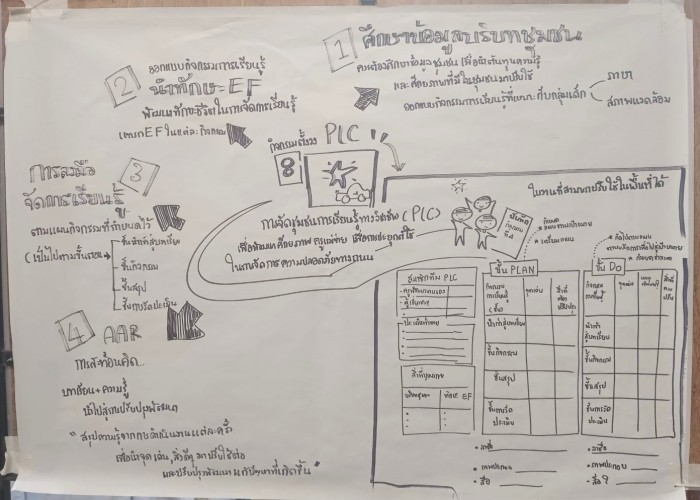 1 ศึกษาข้อมูลบริบทชุมชน
คณะต้องศึกษาข้อมูลชุมชน เพื่อนำต้นทุนความรู้
และศักยภาพที่มีในชุมชนมาปรับใช้
ออกแบบกิจกรรมการเรียนรู้ที่เหมาะกับกลุ่มเด็ก
ภาษา
สภาพแวดล้อม
2 ออกแบบกิจกรรมการเรียนรู้
นำทักษะ EF
พัฒนาทักษะชีวิตในการจัดการเรียนรู้
แทรก EF ในแต่ละกิจกรรม
3 การลงมือ
จัดการเรียนรู้
ตามแผนกิจกรรมที่กำหนดไว้
(เป็นไปตามขั้นตอน
ขั้นนำเข้าสู่บทเรียน
ขั้นกิจกรรม
ขั้นสรุป
ขั้นการวัดประเมิน
4 AAR
การสะท้อนคิด...
บทเรียน + ความรู้
นำไปสู่การปรับปรุงพัฒนา
"สรุปความรู้จากการดำเนินงานแต่ละครั้ง
เพื่อนำจุดเด่น, สิ่งดีๆ มาปรับใช้ต่อ
และปรับปรุงพัฒนา แก้ปัญหาที่เกิดขึ้น"
กิจกรรมตั้งวง PLC
8
การจัดชุมชนการเรียนรู้ทางวิชาชีพ (PLC)
เพื่อพัฒนาศักยภาพ ครูแม่ข่าย เพื่อการประยุกต์ใช้
ในการจัดการความปลอดภัยทางถนน
ใบงานที่สามารถปรับใช้ในพื้นที่ได้
สมาชิกทีม PLC
ประเด็นท้าทาย
ท้าทาย EF
ขั้น PLAN
กิจกรรม
การเรียนรู้
จุดเด่น
สิ่งที่
ต้อง
ปรับปรุง
นำเข้าสู่บทเรียน
ขั้นกิจกรรม
ขั้นสรุป
ขั้นการวัด
ประเมิน
ขั้น DO
กิจกรรม
การเรียนรู้
จุดเด่น
นำเข้า
สู่บทเรียน
ขั้นกิจกรรม
ขั้นสรุป
ขั้นการวัด
ประเมิน
ภาพประกอบ
สื่อ
ภาพประกอบ
สื่อ ?